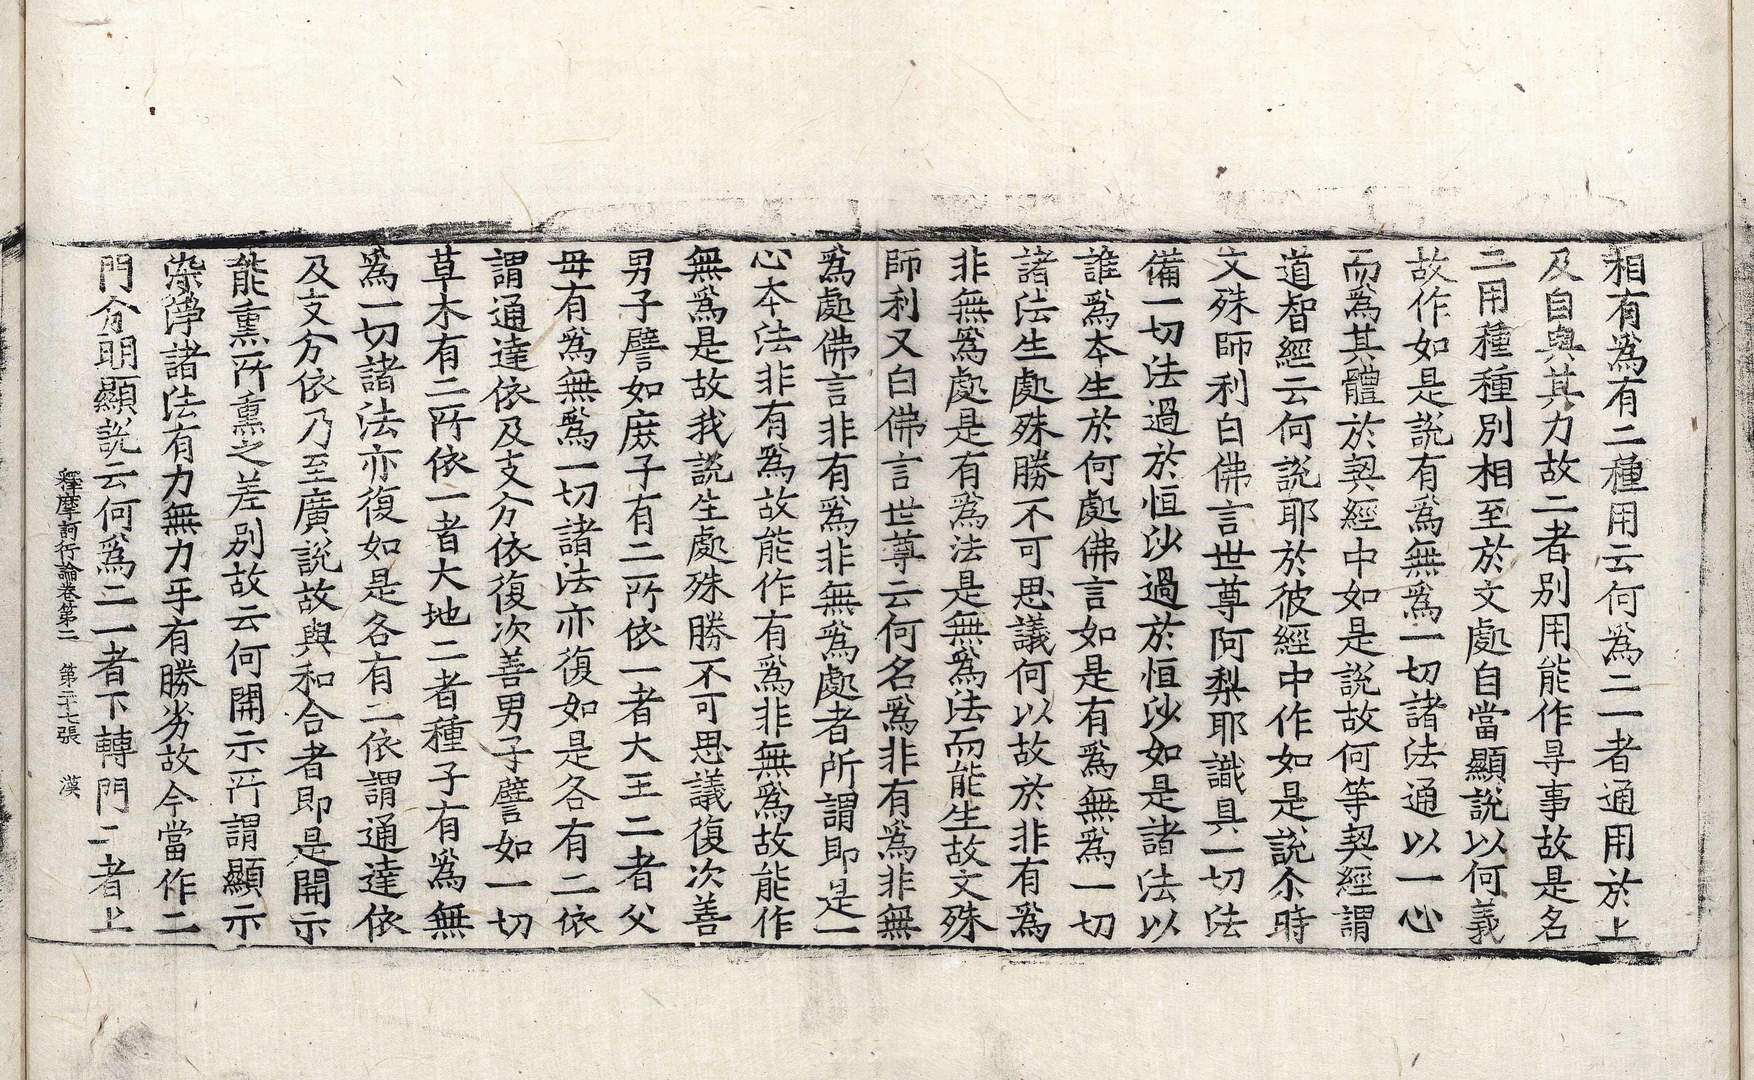 相有爲有二種用云何爲二一者通用於上
及自與其力故二者別用能作尋事故是名
二用種種別相至於文處自當顯說以何義
故作如是說有爲無爲一切諸法通以一心
而爲其體於契經中如是說故何等契經謂
道智經云何說耶於彼經中作如是說尒時
文殊師利白佛言世尊阿梨耶識具一切法
備一切法過於恒沙過於恒沙如是諸法以
誰爲本生於何處佛言如是有爲無爲一切
諸法生處殊勝不可思議何以故於非有爲
非無爲處是有爲法是無爲法而能生故文殊
師利又白佛言世尊云何名爲非有爲非無
爲處佛言非有爲非無爲處者所謂即是一
心本法非有爲故能作有爲非無爲故能作
無爲是故我說生處殊勝不可思議復次善
男子譬如庶子有二所依一者大王二者父
母有爲無爲一切諸法亦復如是各有二依
謂通達依及支分依復次善男子譬如一切
草木有二所依一者大地二者種子有爲無
爲一切諸法亦復如是各有二依謂通達依
及支分依乃至廣說故與和合者即是開示
能熏所熏之差別故云何開示所謂顯示
染淨諸法有力無力乎有勝劣故今當作二
門分明顯說云何爲二一者下轉門二者上
釋摩訶衍論卷第二 第二十七張 漢